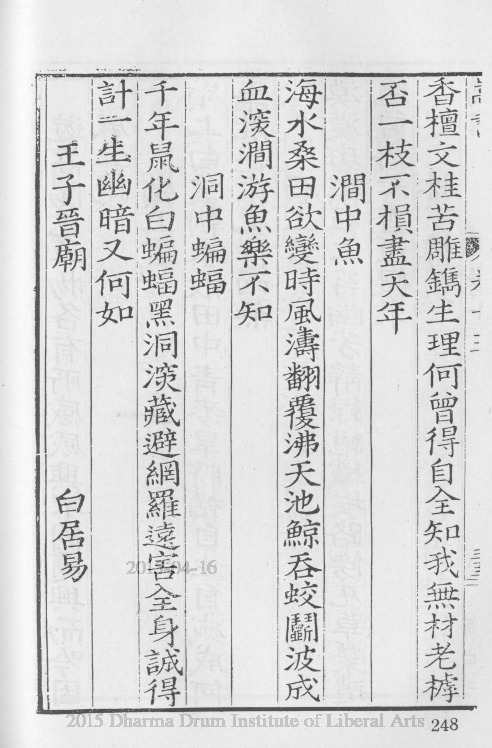 香檀文桂苦雕鐫生理何曾得自全知我無材老樗
否一枝不損盡天年
澗中魚
海水桑田欲變時風濤翻覆沸天池鯨吞蛟鬭波成
血深澗游魚樂不知
洞中蝙蝠
千年鼠化白蝙蝠黑洞深藏避網羅遠害全身誠得
計一生幽暗又何如
王子晉廟 白居易
2015-04-16
2015 Dharma Drum Institute of Liberal Arts
248